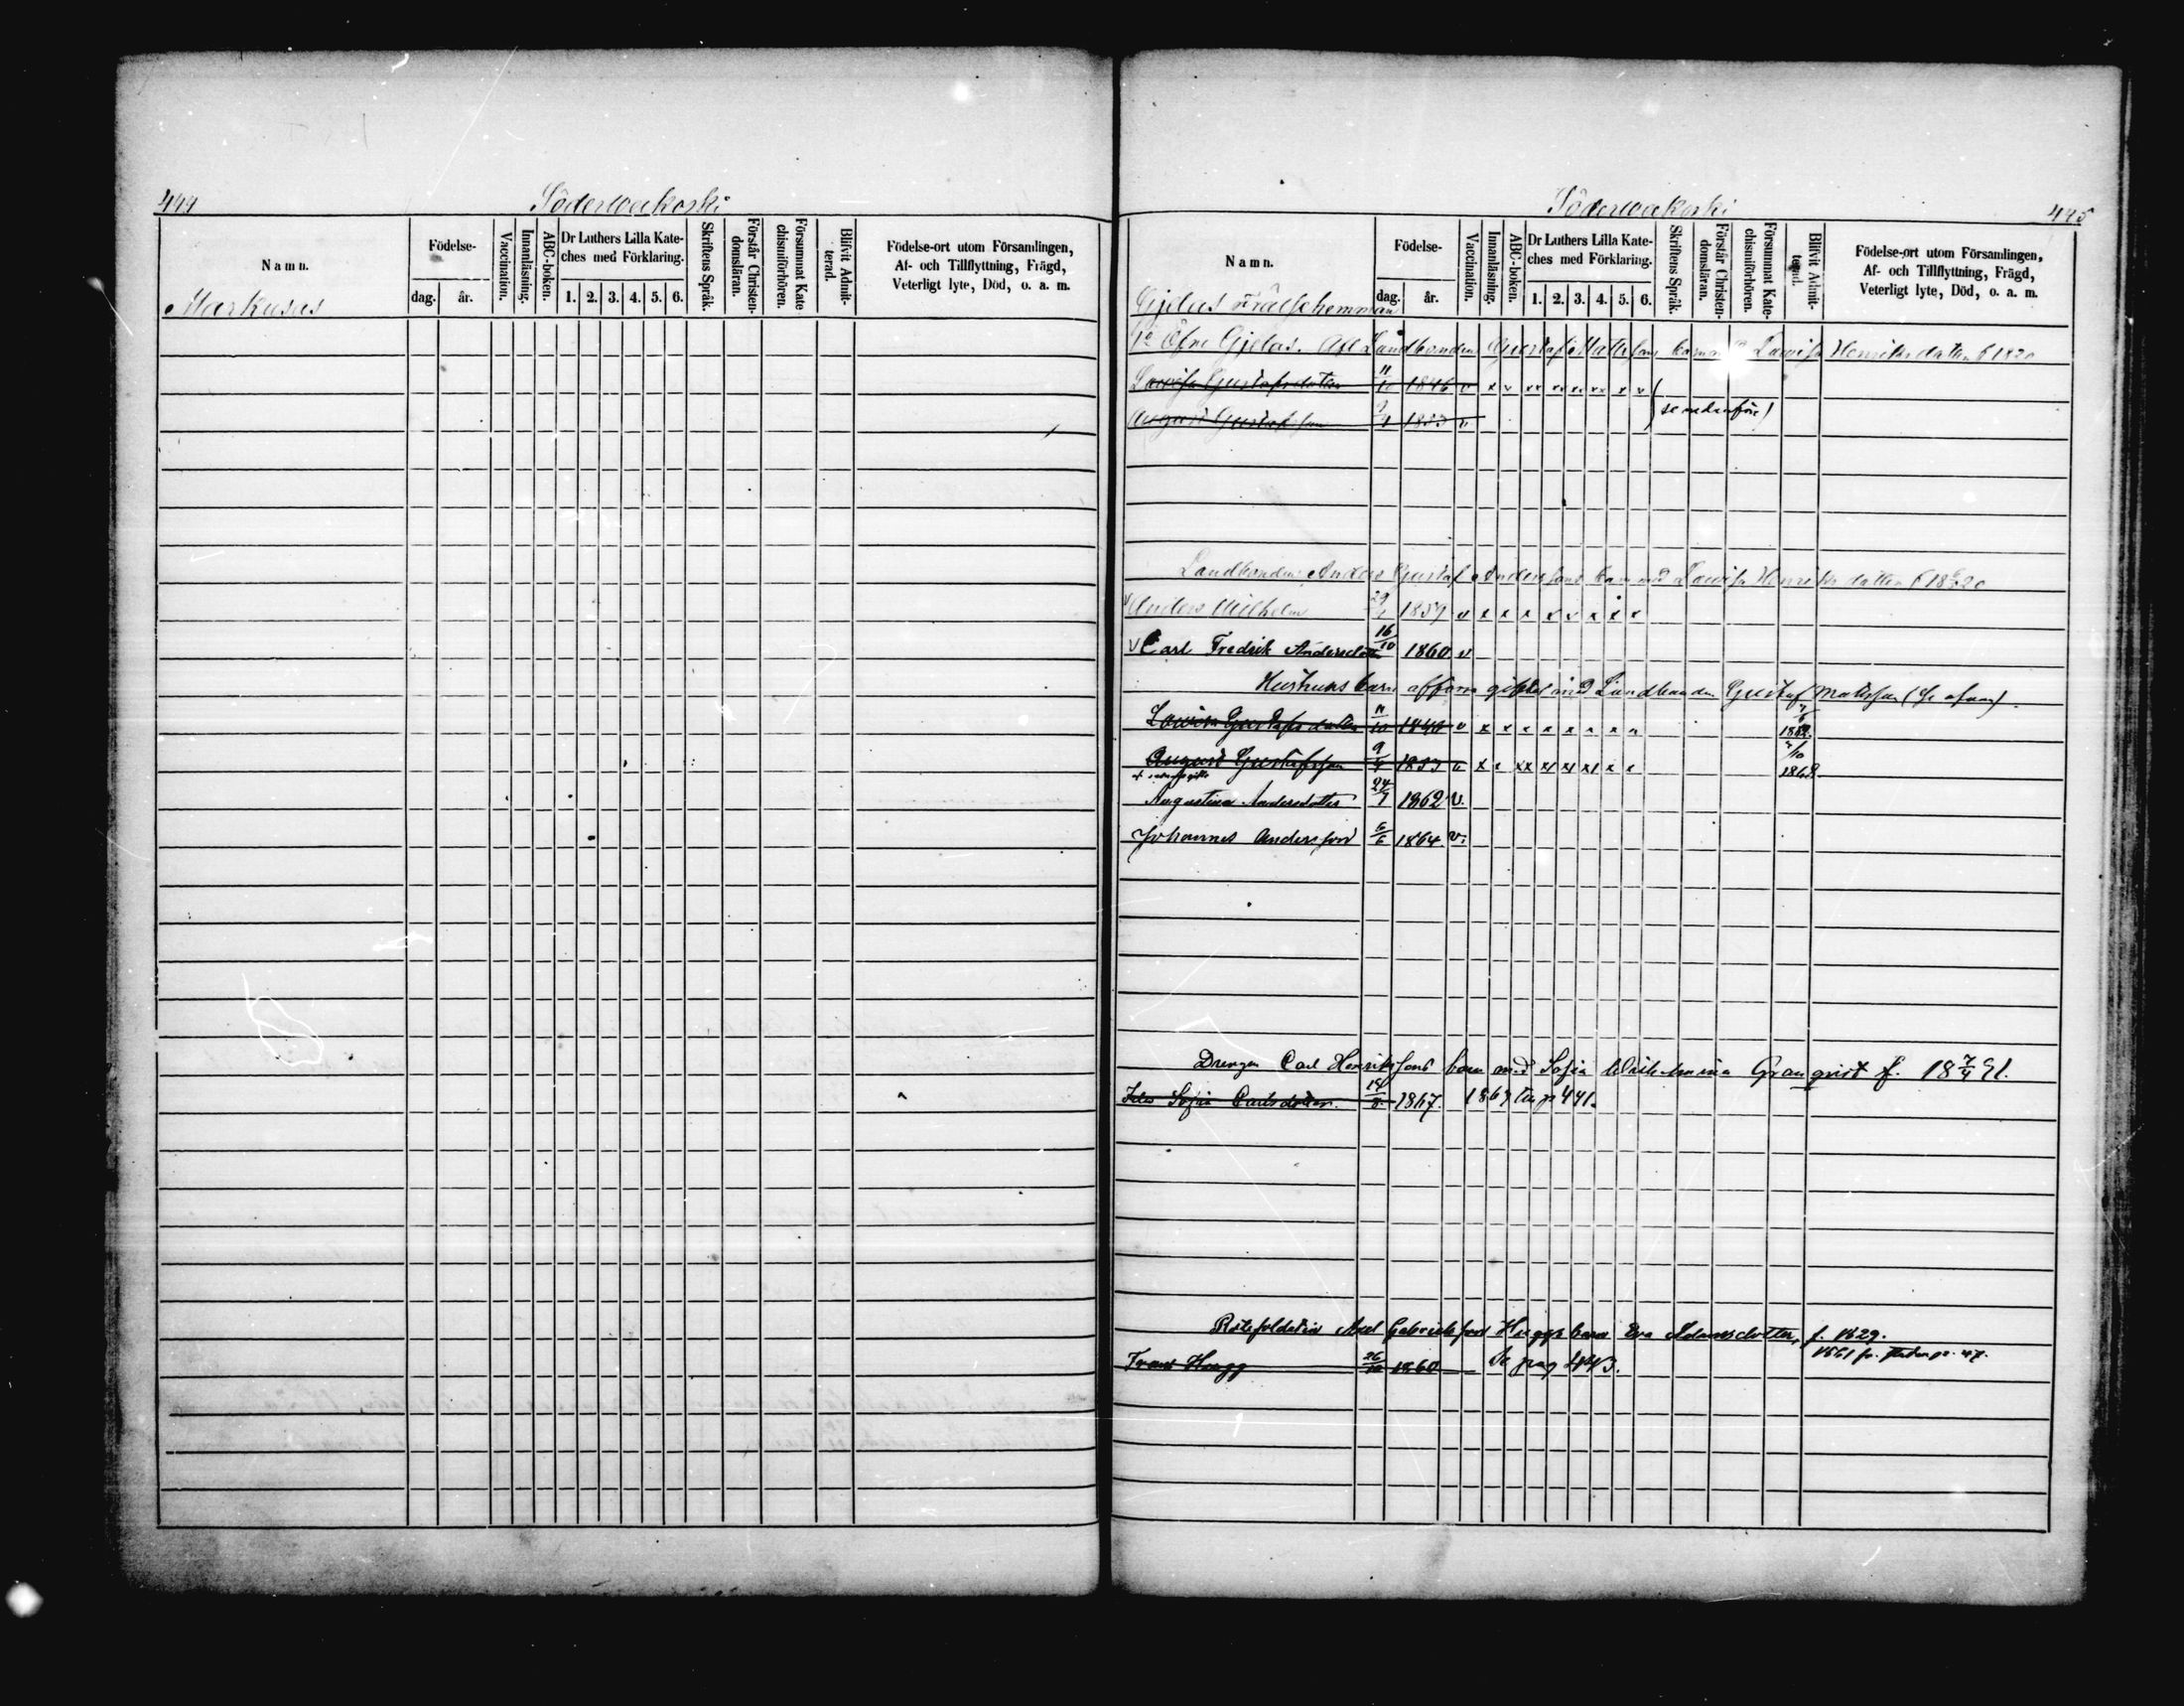 444
Söderveckoski
Namn.
Födelse-
dag.
år.
Vaccination.
Innanläsning.
ABC-boken.
Dr Luthers Lilla Kate-
ches med Förklaring.
1. 2. 3. 4. 5. 6.
Skriftens Språk.
Förstår Christen-
domsläran.
Försummat Kate
chismiförhören.
Blifvit Admit-
terad.
Födelse-ort utom Församlingen,
Af- och Tillflyttning, Frägd,
Veterligt lyte, Död, o. a. m.
Markusas
Söderveckoski
445
Namn.
Födelse-
dag.
år.
Vaccination.
Innanläsning.
ABC-boken.
Dr Luthers Lilla Kate-
ches med Förklaring.
1. 2. 3. 4. 5. 6.
Skriftens Språk.
Förstår Christen-
domsläran.
Försummat Kate-
chismiförhören.
Blifvit Admit-
terad.
Födelse-ort utom Församlingen,
Af- och Tillflyttning, Frägd,
Veterligt lyte, Död, o. a. m.
Gjelas Frälsehemman
Öfre Gjelas. Landbonden Gustaf Mattssons barn Lovisa Henriksdotter f 1820
Lovisa Gustafsdotter 11/10 1846 v
August Gustafsson 9/4 1853 v
(se nedanföre)
Landbonden Anders Gustaf Anderssons barn med Lovisa Henriksdotter f 1820
Anders Wilhelm 29 1857 v
Carl Fredrik Andersson 16/10 1860 v
Hustruns barn gifte med Landbonden Gustaf Matsson (se ofvan).
Lovisa Gustafsdotter 11/10 1846 v 1862.
August Gustafsson 9/4 1853 v 1868
Augustina Andersdotter 24/7 1862 v.
Johannes Andersson 6/6 1864 v.
Drengen Carl Henrikssons barn med Sofia Wilhelmina Granqvist f. 18 7/4 41.
Ida Sofia Carlsdotter. 18/8 1867. 1869 till p 441.
Axel Gabrielsson Huggs barn Eva Adamsdotter, f. 1829.
1861 fr.
Frans Hugg 26/10 1860 Se pag 443.